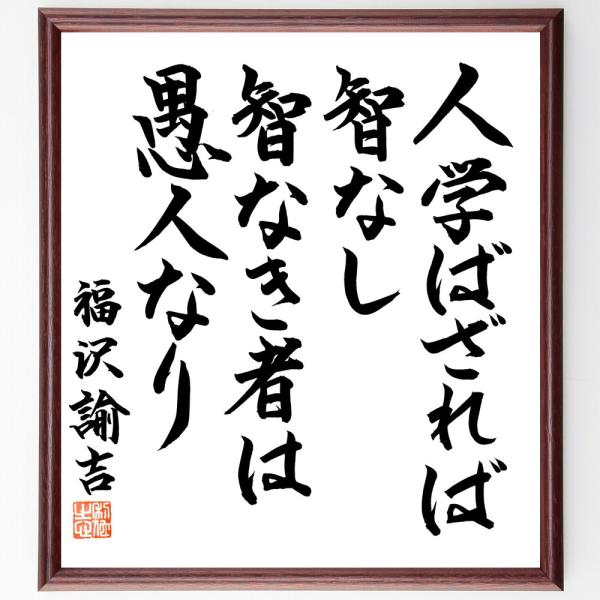 人学ばざれば
智なし
智なき者は
愚人なり
福沢諭吉